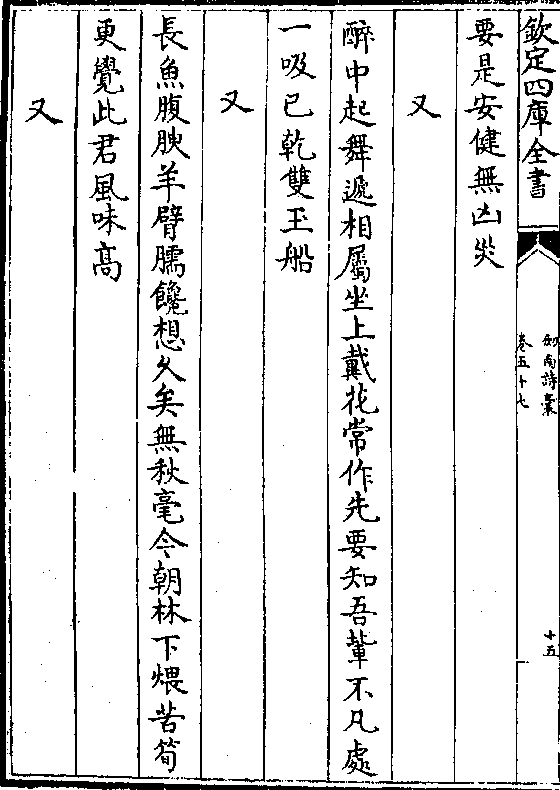 欽定四庫全書
劍南詩藁
卷五十七
十五
要是安健無凶災
又
醉中起舞遞相屬坐上戴花常作先要知吾輩不凡處
一吸已乾雙玉船
又
長魚腹腴羊臂臑饞想久矣無秋毫今朝林下煨苦筍
更覺此君風味高
又